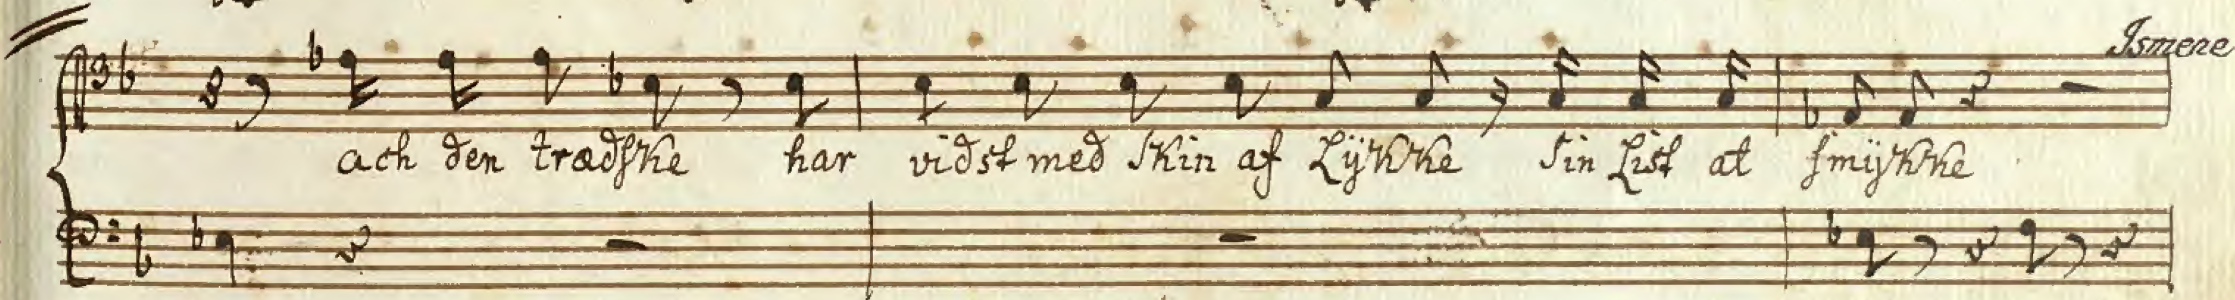 Ismene
ach den trædske har vidst med Skin af Lÿkke sin List at smÿkke